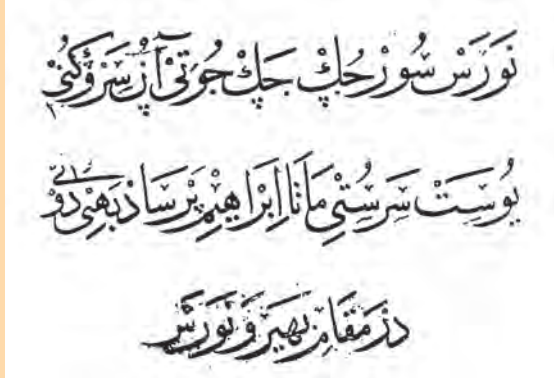 نَورَسْ سُورْ جُكْ جَكْ جُوتِيْ آنْ سَرْوَكُنِيْ
يُوسَتْ سَرَسُتِيْ مَاتَا اِبْرَاهِيْمْ پَرَسَادْ بَهَيْ دُونِيْ
دَرْ مَقَامْ بَهَيرَوْ نَورَسْ